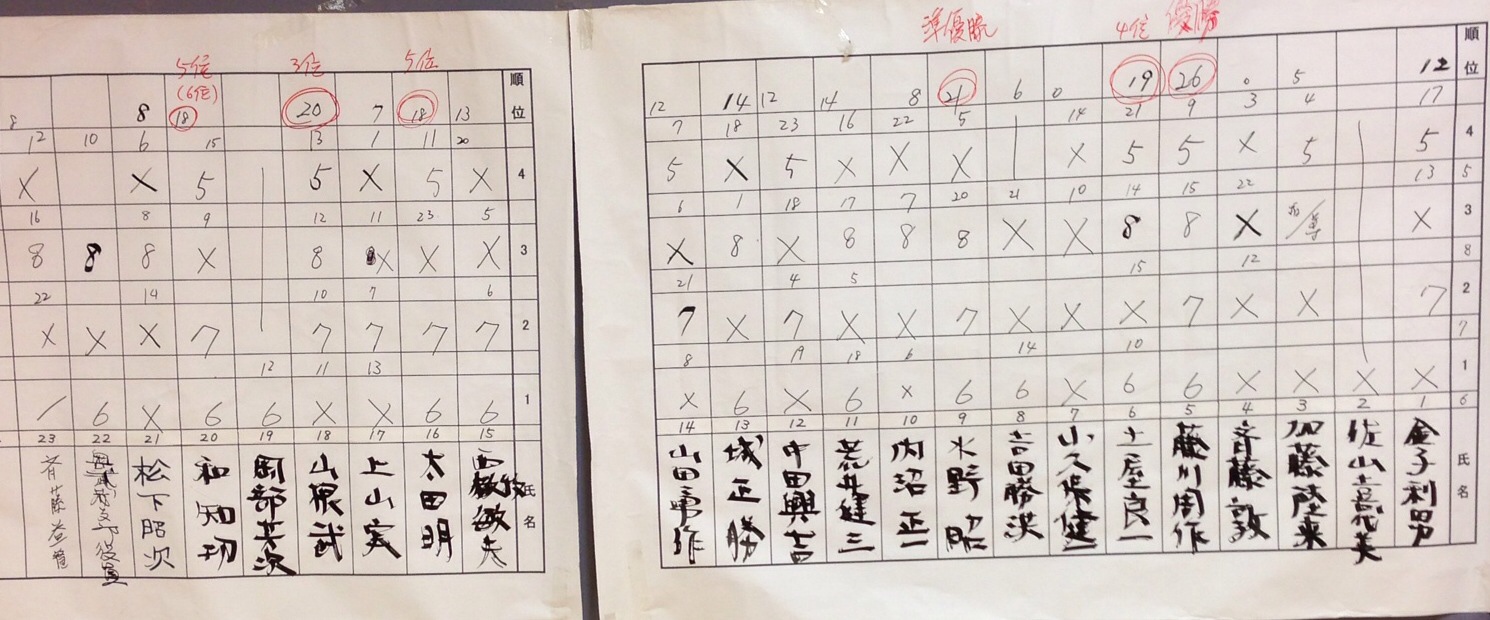 準優勝
4位
優勝
順位
12
14
12
14
8
21
6
0
19
26
0
5
12
7
18
23
16
22
5
14
21
9
3
4
17
4
5
X
5
X
X
X
X
5
5
X
5
5
6
1
18
17
7
20
21
10
14
15
22
13
5
3
X
8
X
8
8
8
X
X
8
8
X
X
21
4
5
15
12
8
2
7
X
7
X
X
7
X
X
X
7
X
X
7
8
19
18
6
14
10
7
1
X
6
X
6
X
6
6
X
6
6
X
X
X
X
14
13
12
11
10
9
8
7
6
5
4
3
2
1
6
氏名
金子利男
佐山喜代美
加藤陸来
斉藤敦
藤川周作
土屋良一
小久保健一
吉田勝洪
水野昭
内沼正一
荒井健三
中田興吉
城正勝
5位
(6位)
3位
5位
順位
8
8
18
20
7
18
13
12
10
6
15
13
1
11
20
4
X
X
5
5
X
5
X
16
8
9
12
11
23
5
3
8
8
8
X
8
X
X
X
22
14
10
7
6
2
X
X
X
7
7
7
7
7
12
11
13
1
/
6
X
6
6
X
X
6
6
23
22
21
20
19
18
17
16
15
氏名
太田明
上山実
山根武
岡部英次
和知功
松下昭次